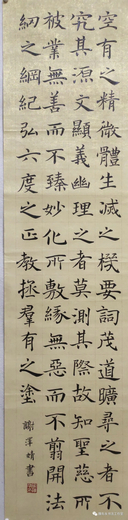 空有之精微體生滅之機要詞茂道曠尋之者不
究其源文顯義幽理之者莫測其際故知聖慈所
被業無善而不臻妙化所敷緣無惡而不翦開法
網之綱紀弘六度之正教拯羣有之塗
謝澤晴書